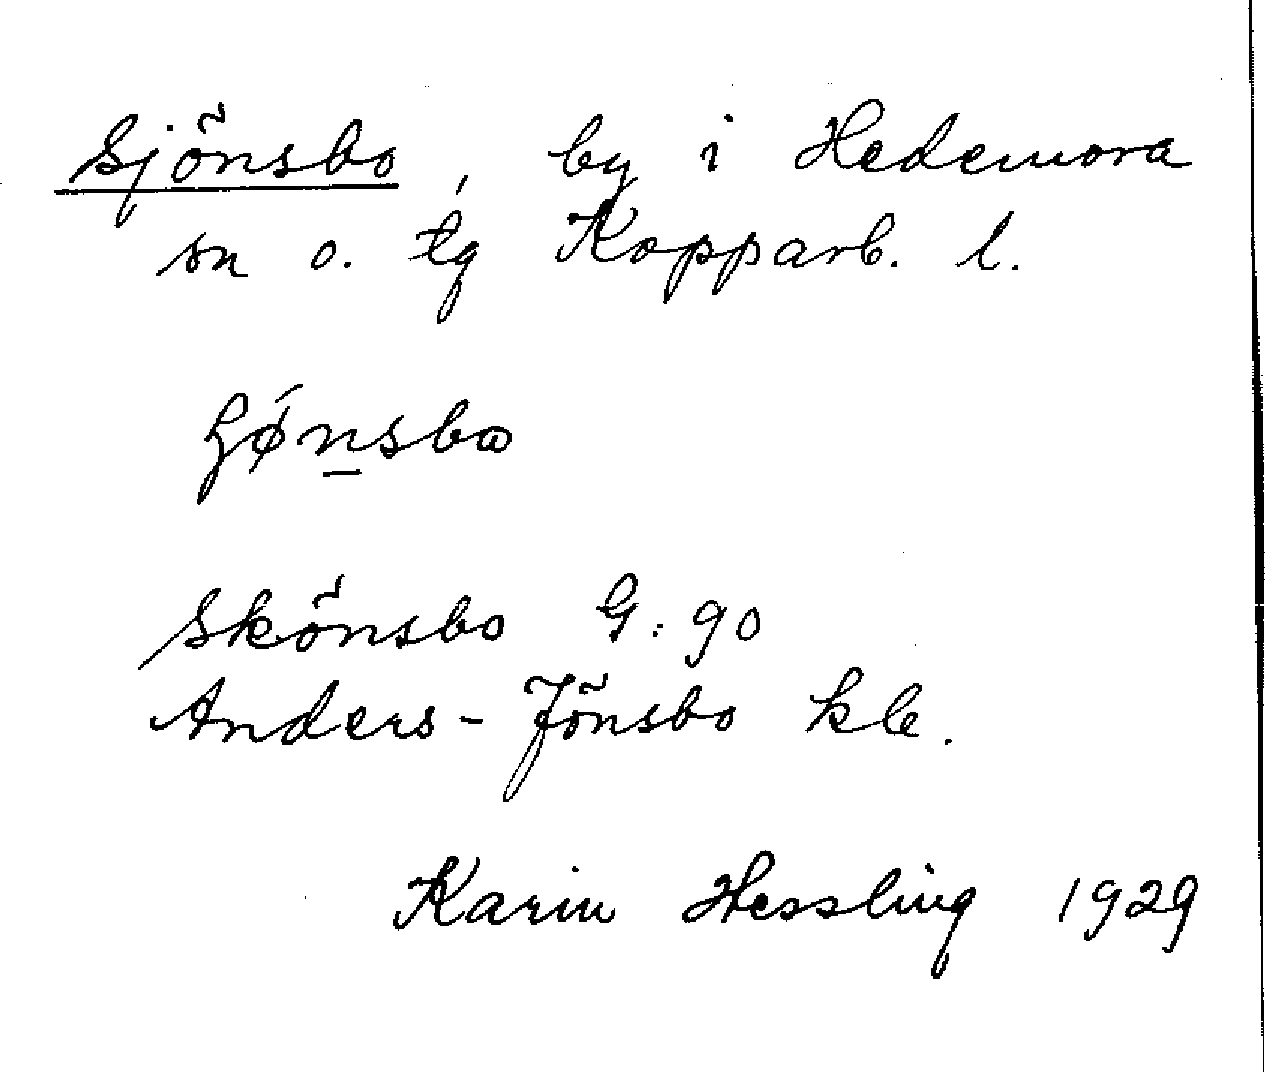 Sjönsbo, by i Hedemora
sn o. tg Kopparb. l.
ʃǿnsbω
Skönsbo G: 90
Anders-Jönsbo kle.
Karin Hessling 1929